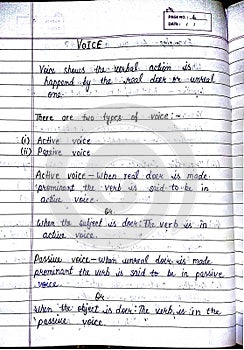 PAGE NO.: 4
DATE: / /
VOICE
Voice shows the verbal action is
happend by the real doer or unreal
one.
There are two types of voice:-
(i) Active voice
(ii) Passive voice
Active voice - When real doer is made
prominant the verb is said to be in
active voice.
Or
When the subject is doer: The verb is in
active voice.
Passive voice - When unreal doer is made
prominent the verb is said to be in passive
voice.
Or
When the object is doer: The verb is in the
passive voice.